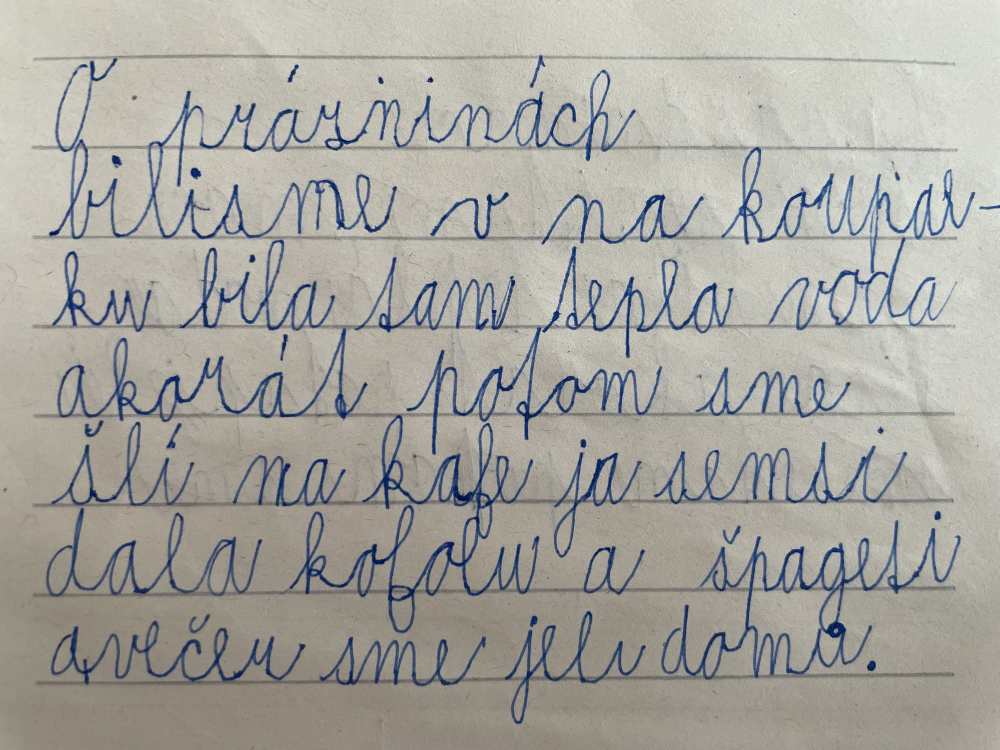 O prázninách
bilisme v na koupar-
ku bila tam tepla voda
akorát potom sme
šlí na kafe ja semsi
dala kofolu a špageti
avečeu sme jeli doma.